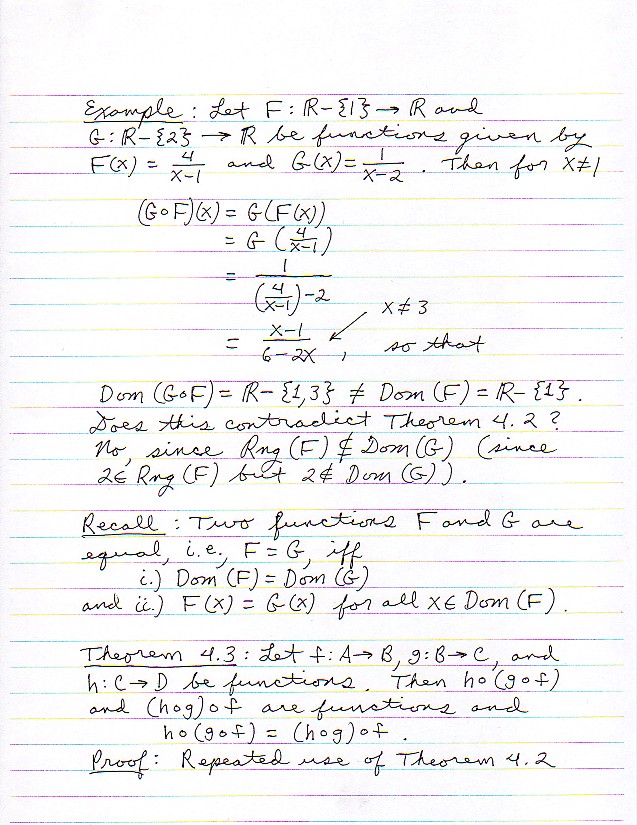 Example: Let F: ℝ-{1} → ℝ and
G: ℝ-{2} → ℝ be functions given by
F(x) = 4/(x-1) and G(x) = 1/(x-2). Then for x≠1
(G∘F)(x) = G(F(x))
= G(4/(x-1))
= 1/((4/(x-1))-2)
x≠3
= (x-1)/(6-2x), so that
Dom(G∘F) = ℝ-{1,3} ≠ Dom(F) = ℝ-{1}.
Does this contradict Theorem 4.2?
No, since Rng(F) ⊈ Dom(G) (since
2∈ Rng(F) but 2∉ Dom(G)).
Recall: Two functions F and G are
equal, i.e., F = G, iff
i.) Dom(F) = Dom(G)
and ii.) F(x) = G(x) for all x∈ Dom(F).
Theorem 4.3: Let f: A→B, g: B→C, and
h: C→D be functions. Then h∘(g∘f)
and (h∘g)∘f are functions and
h∘(g∘f) = (h∘g)∘f.
Proof: Repeated use of Theorem 4.2